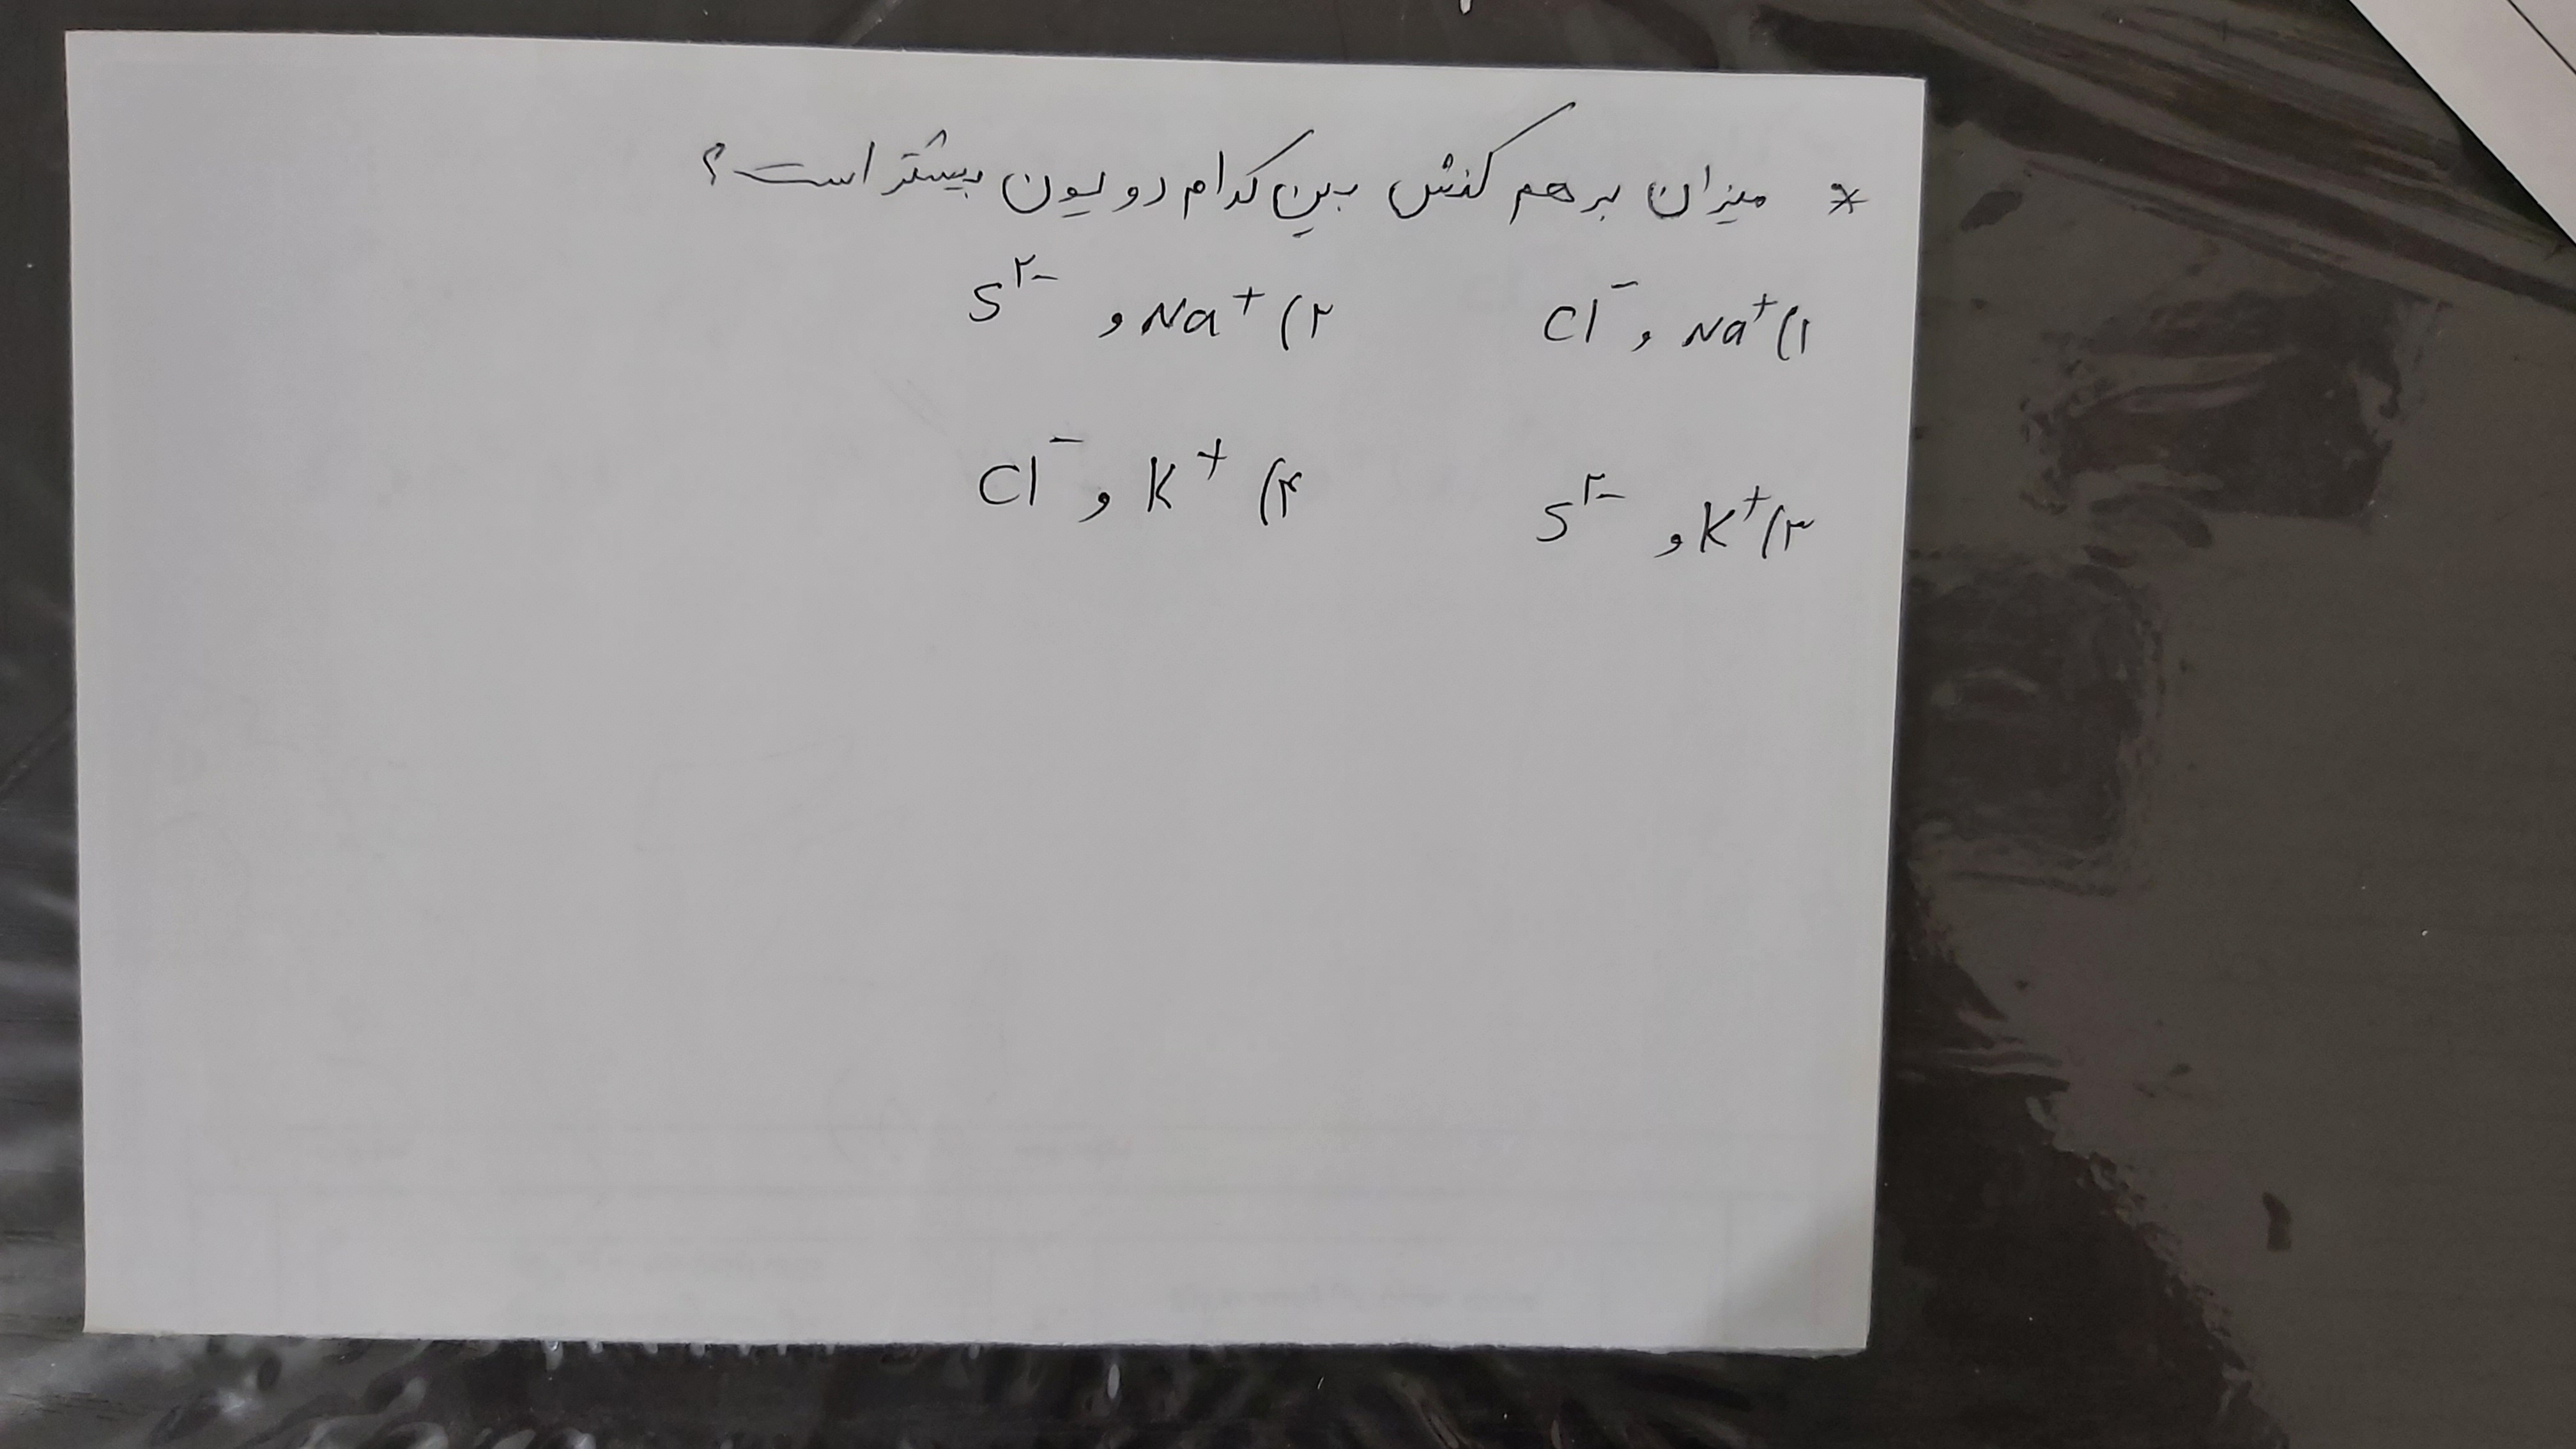 * میزان برهم کنش بین کدام دو یون بیشتر است ؟
۱) Na⁺ , Cl⁻ ۲) Na⁺ , S²⁻
۳) K⁺ , S²⁻ ۴) K⁺ , Cl⁻